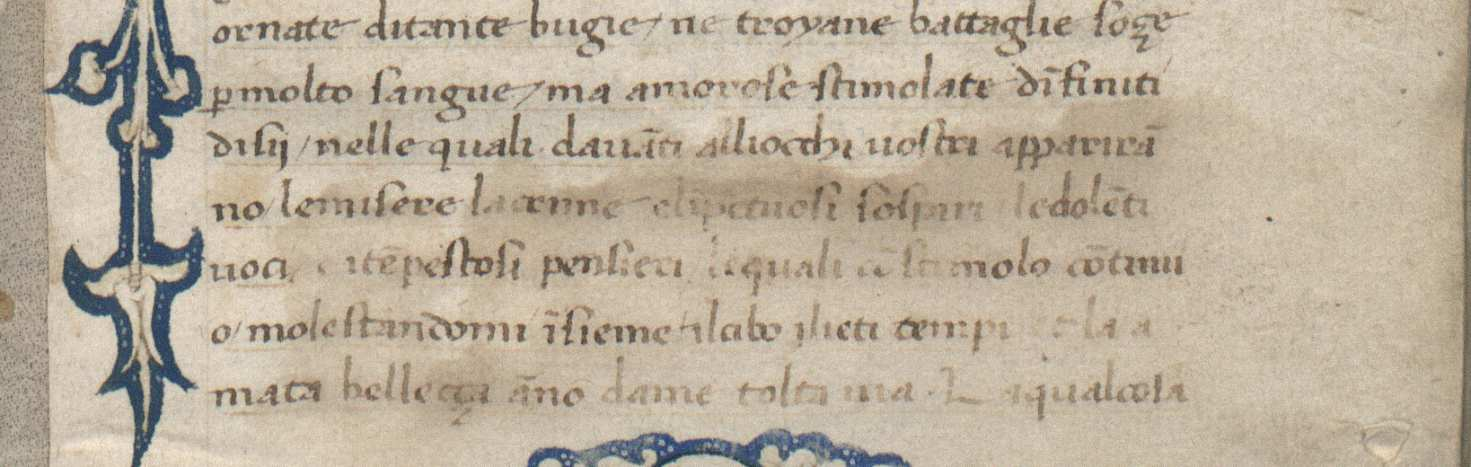 ornate ditante bugie / ne troyane battaglie soçe
ꝑ molto sangue / ma amorose stimolate dīfiniti
disij / nelle quali dauāti alliocchi uostri apparirā
no / lemisere lacrime elīpetuosi sospiri ledolēti
uoci, e itēpestosi pensieri lequali cō stimolo cōtinu
o / molestandomi / īsieme ilcibo ilieti tempi la a
mata belleçça āno dame tolta uia. Laqualcosa